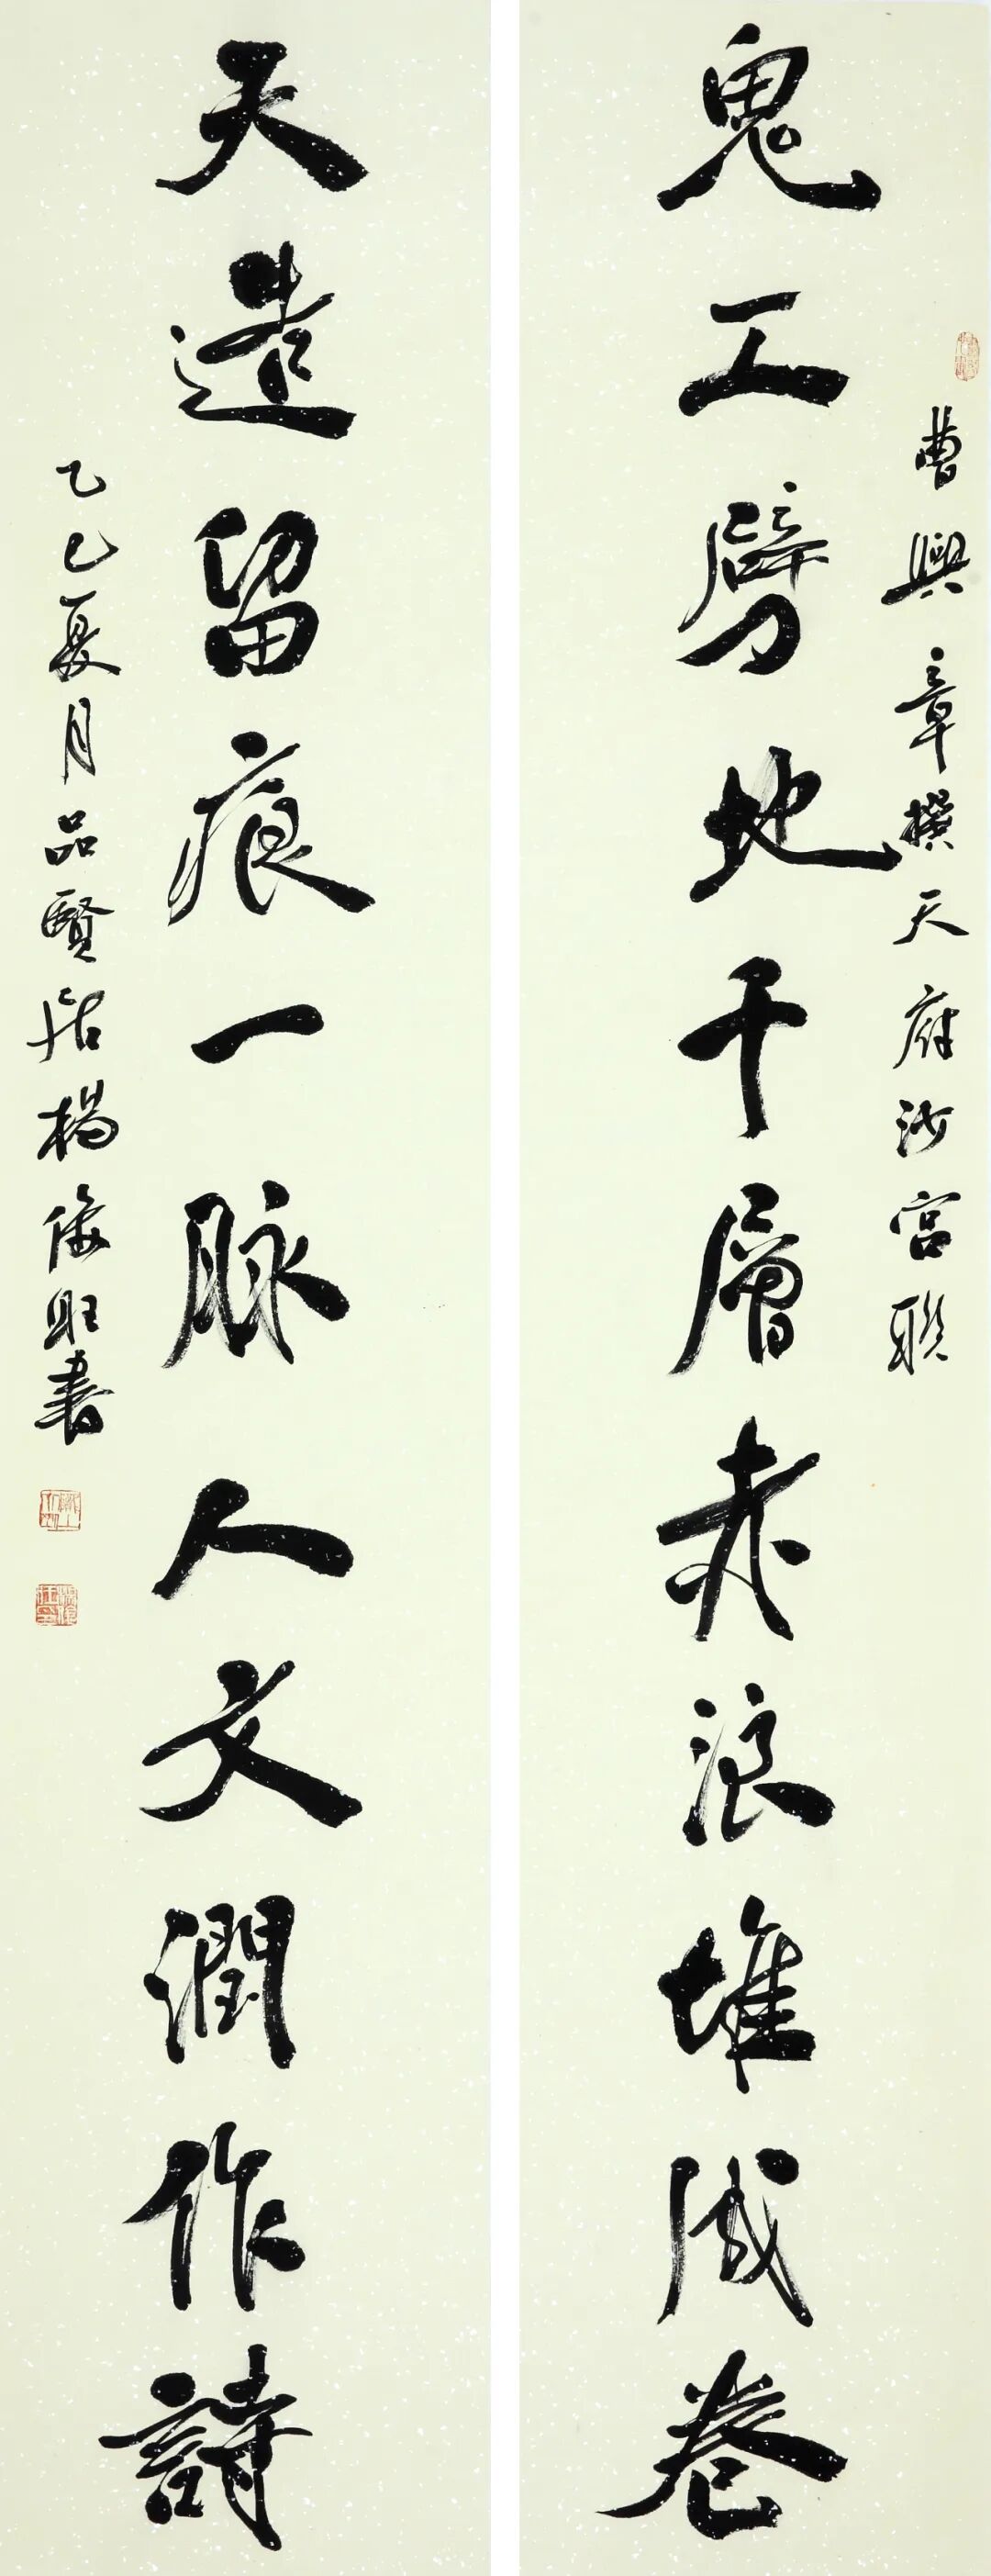 曹興章撰天府沙宮聯
鬼工劈地千層赤浪堆成卷
天造留痕一脉人文潤作詩
乙巳夏月品賢居楊俊旺書